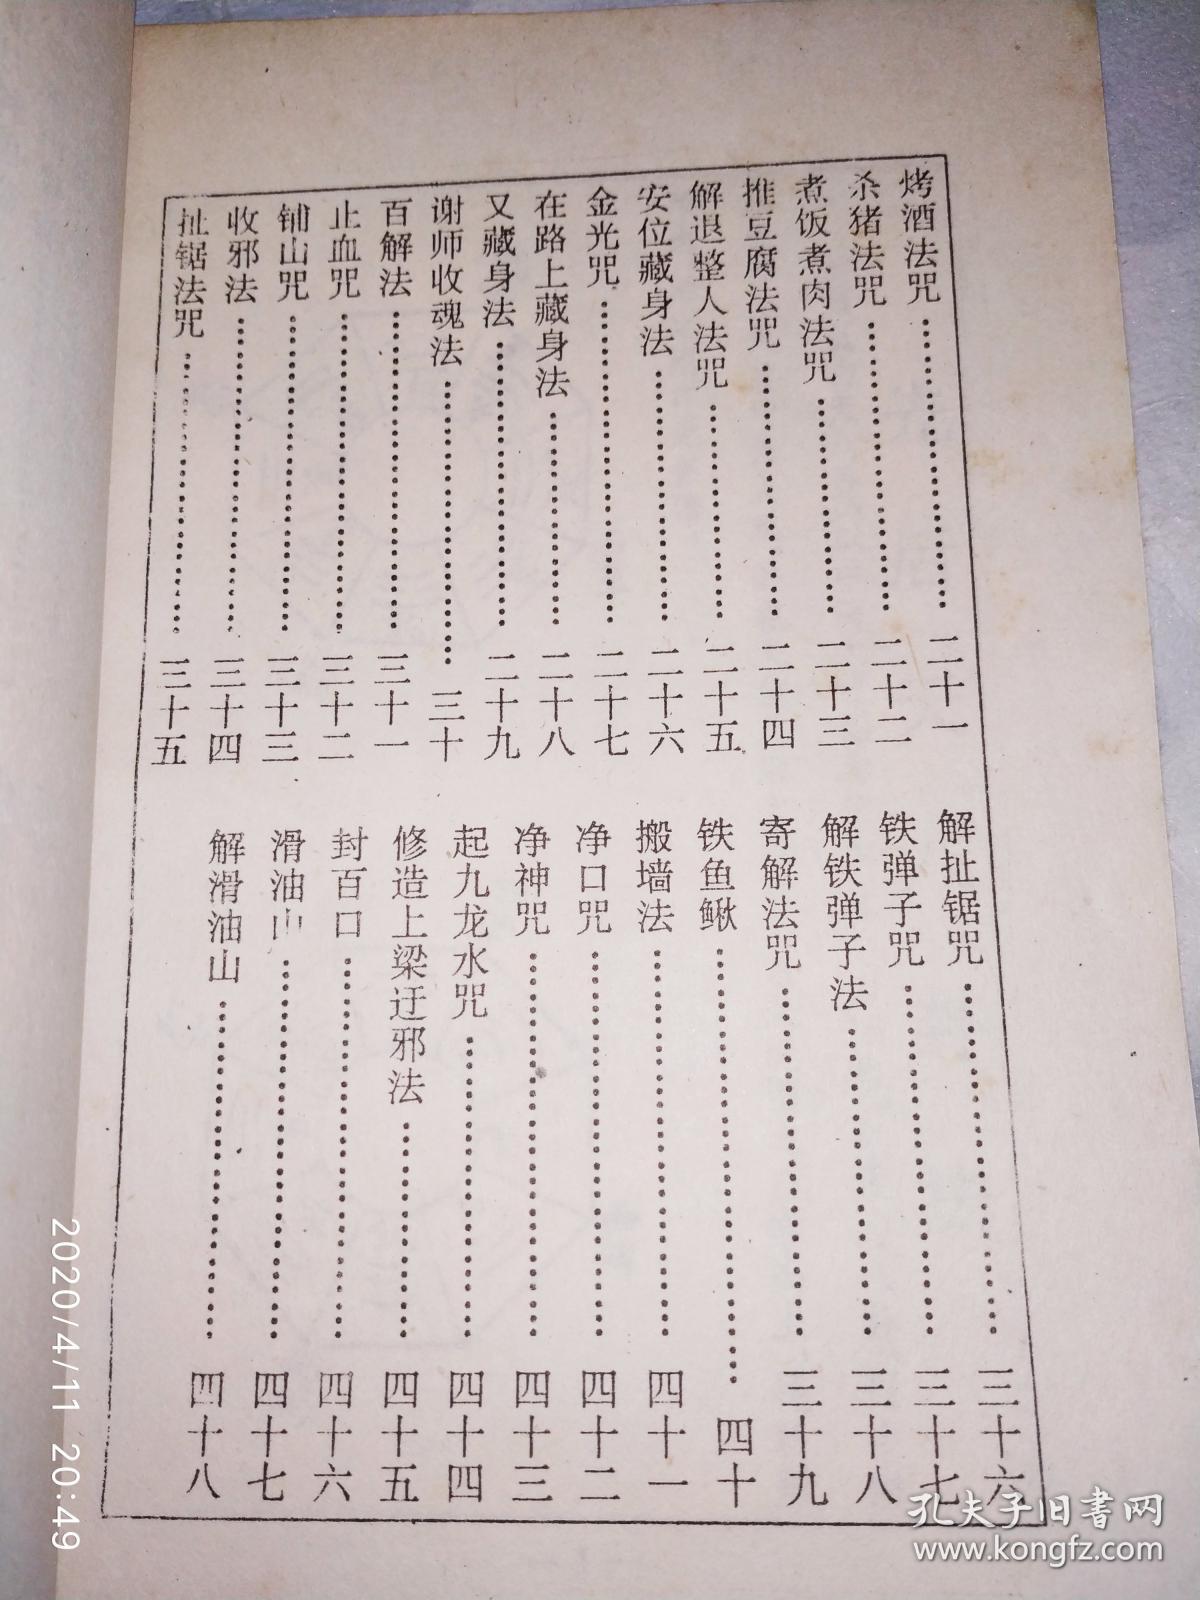 烤酒法咒……二十一
杀猪法咒……二十二
煮饭煮肉法咒……二十三
推豆腐法咒……二十四
解退整人法咒……二十五
安位藏身法……二十六
金光咒……二十七
在路上藏身法……二十八
又藏身法……二十九
谢师收魂法……三十
百解法……三十一
止血咒……三十二
铺山咒……三十三
收邪法……三十四
扯锯法咒……三十五
解扯锯咒……三十六
铁弹子咒……三十七
解铁弹子法……三十八
寄解法咒……三十九
铁鱼鳅……四十
搬墙法……四十一
净口咒……四十二
净神咒……四十三
起九龙水咒……四十四
修造上梁迂邪法……四十五
封百口……四十六
滑油山……四十七
解滑油山……四十八
2020/4/11 20:49
孔夫子旧书网
www.kongfz.com